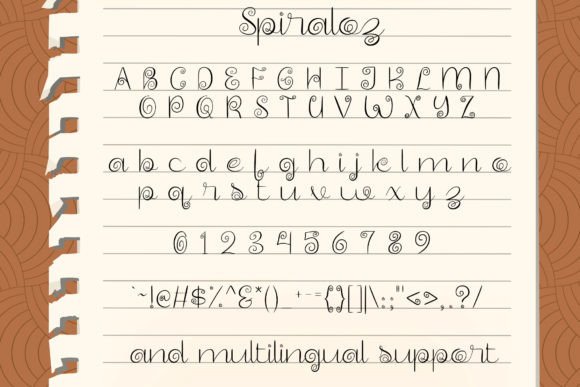 Spiraloz
A B C D E F G H I J K L M N
O P Q R S T U V W X Y Z
a b c d e f g h i j k l m n o
p q r s t u v w x y z
0 1 2 3 4 5 6 7 8 9
`~!@#$%^&*()_+-={}[]|\:;"'<>,.?/
and multilingual support